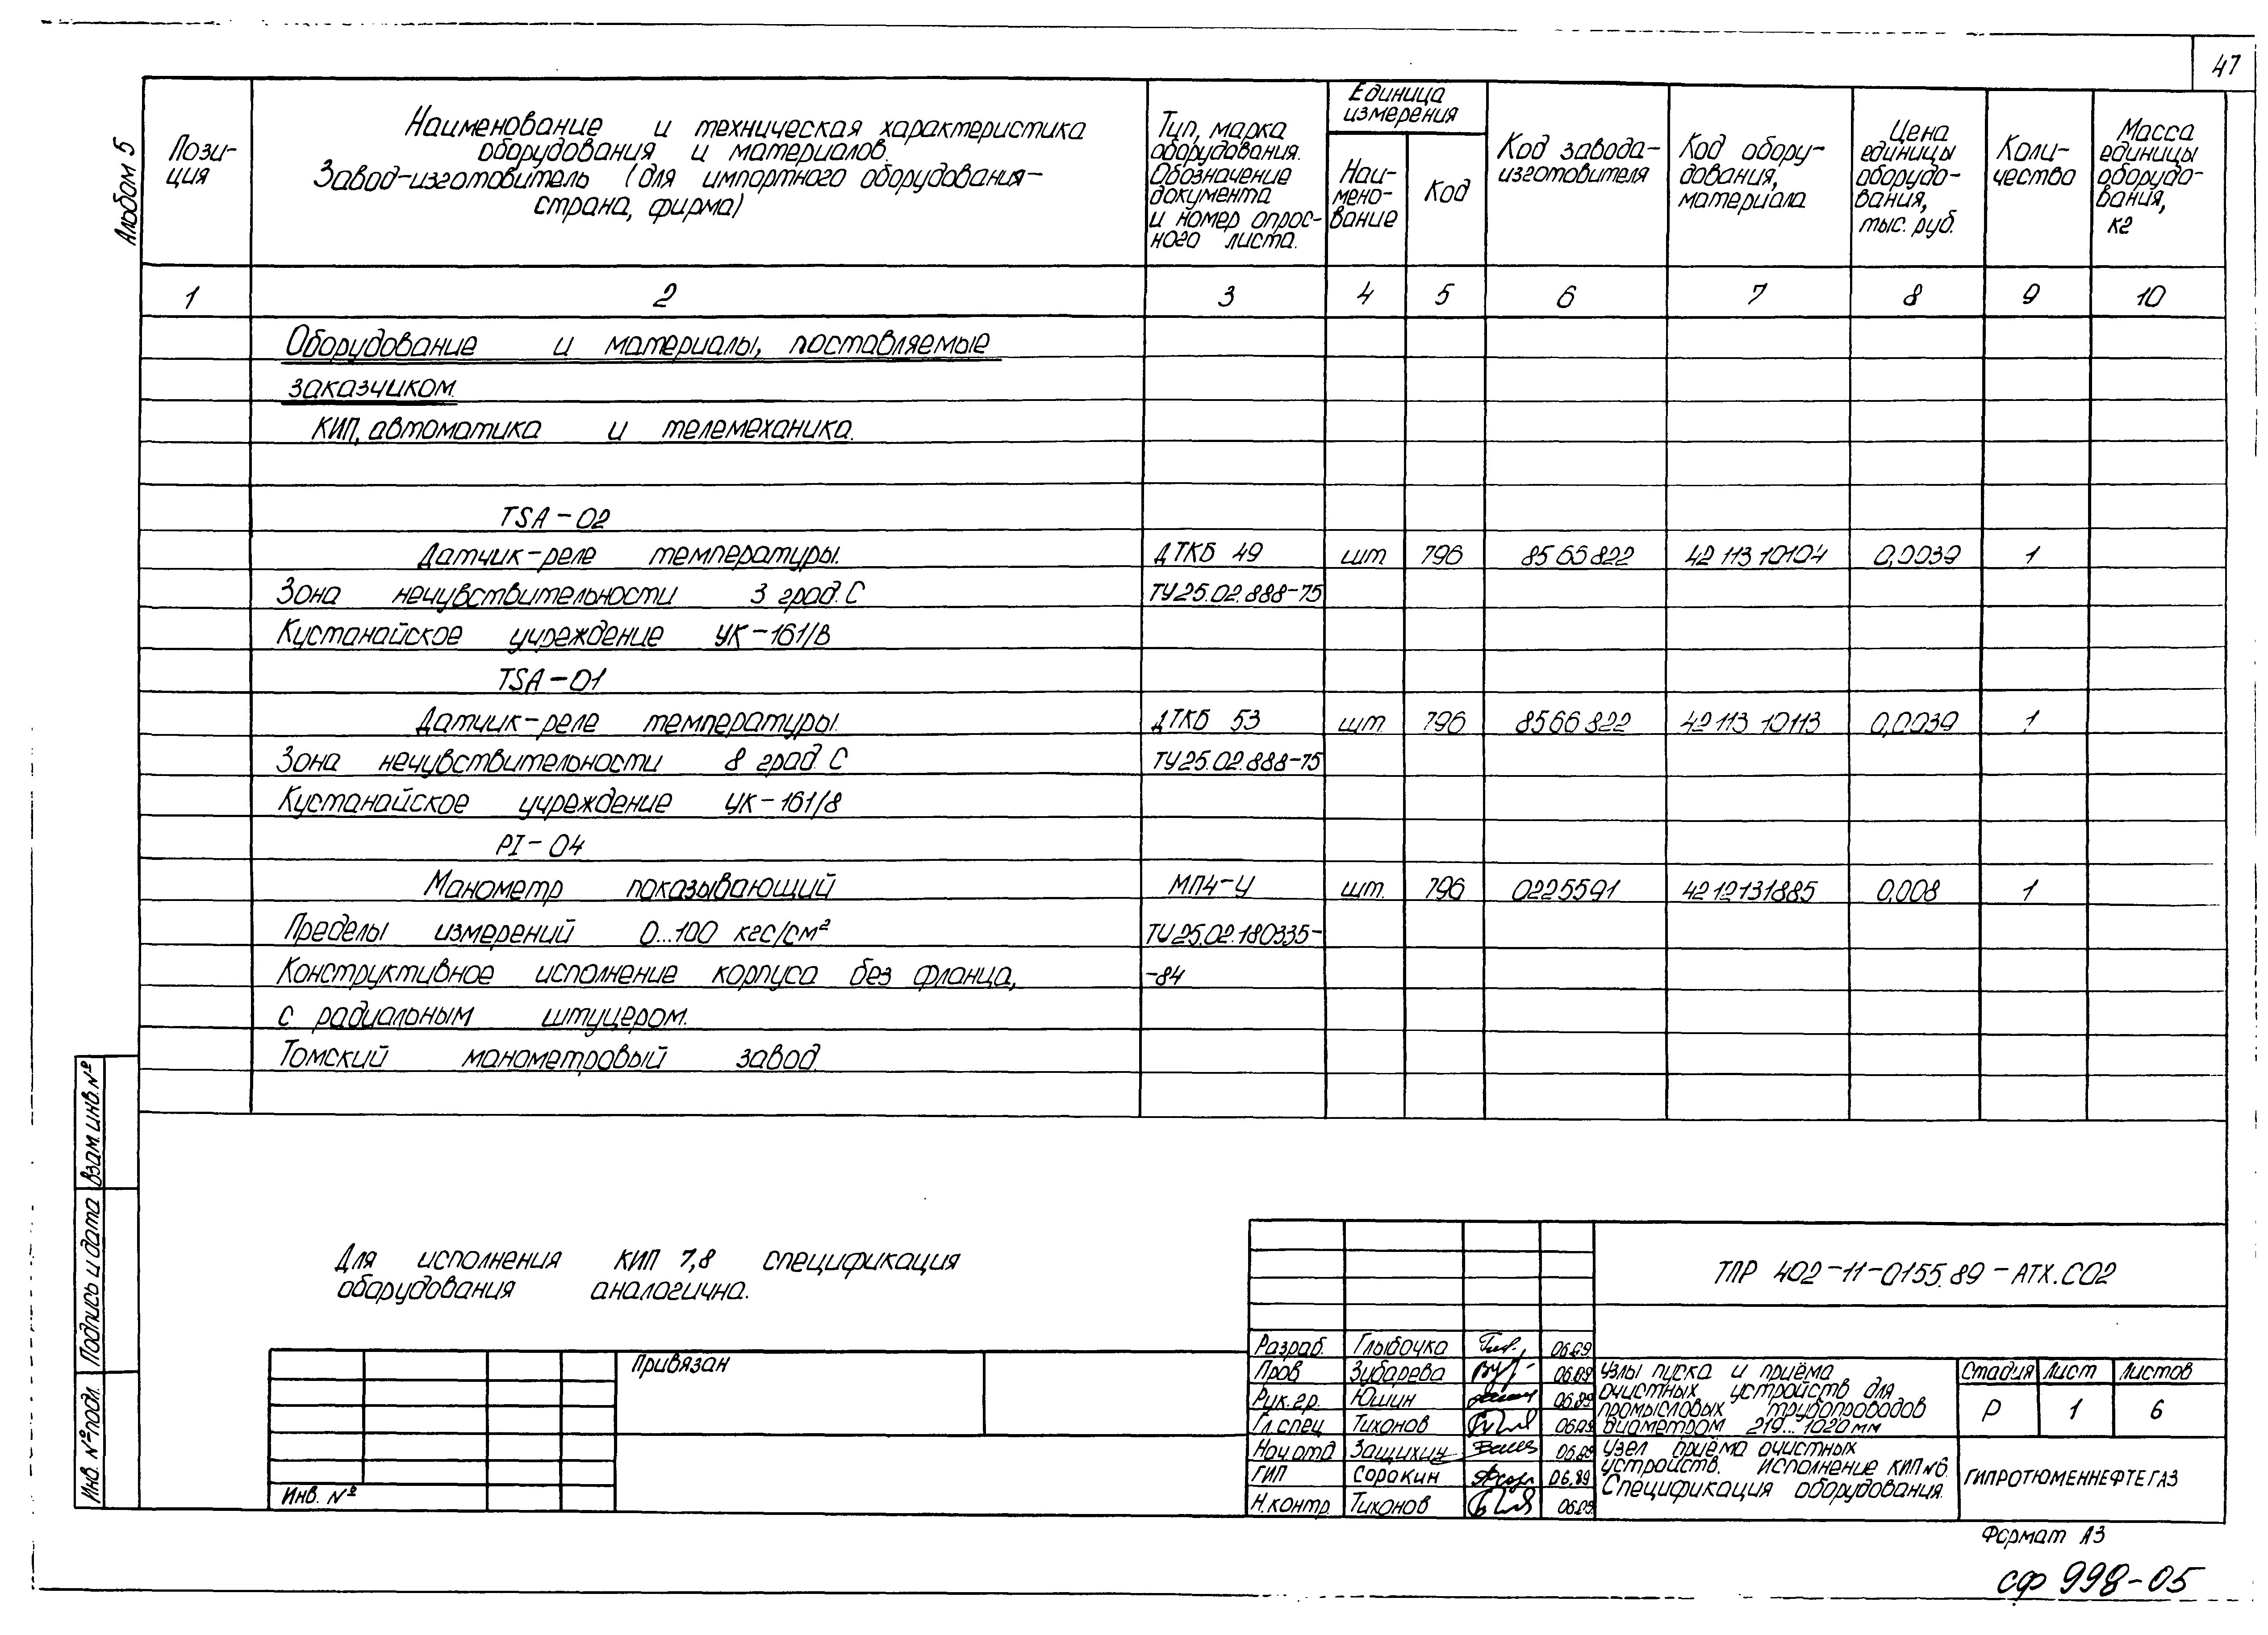 47
Альбом 5
Пози-
ция
Наименование и техническая характеристика
оборудования и материалов.
Завод-изготовитель (для импортного оборудования-
страна, фирма)
Тип, марка
оборудования.
Обозначение
документа
и номер опрос-
ного листа.
Единица
измерения
Наи-
мено-
вание
Код
Код завода-
изготовителя
Код обору-
дования,
материала
Цена
единицы
оборудо-
вания,
тыс. руб.
Коли-
чество
Масса
единицы
оборудо-
вания,
кг
1 2 3 4 5 6 7 8 9 10
Оборудование и материалы, поставляемые
заказчиком.
КИП, автоматика и телемеханика.
TSA-02
Датчик-реле температуры. ДТКБ 49 шт. 796 8566822 42 113 10104 0,0039 1
Зона нечувствительности 3 град. С ТУ25.02.888-75
Кустанайское учреждение УК-161/8
TSA-01
Датчик-реле температуры. ДТКБ 53 шт. 796 8566822 42 113 10113 0,0039 1
Зона нечувствительности 8 град. С ТУ25.02.888-75
Кустанайское учреждение УК-161/8
PI-04
Манометр показывающий МП4-У шт. 796 0225591 4212131885 0,008 1
Пределы измерений 0...100 кгс/см²  ТУ25.02.180335-
Конструктивное исполнение корпуса без фланца, -84
с радиальным штуцером.
Томский манометровый завод.
Для исполнения КИП 7,8 спецификация
оборудования аналогична.
Взам. инв. №
Подпись и дата
Инв. № подл.
Привязан
Инв. №
ТПР 402-11-0155.89-АТХ.СО2
Разраб. Глыбочка 06.89
Пров Зубарева 06.89
Рук. гр. Юшин 06.89
Гл. спец Тихонов 06.89
Нач. отд Защихин 06.89
ГИП Сорокин 06.89
Н. контр. Тихонов 06.89
Узлы пуска и приёма
очистных устройств для
промысловых трубопроводов
диаметром 219...1020 мм
Узел приёма очистных
устройств. Исполнение КИП №6.
Спецификация оборудования.
Стадия Лист Листов
Р 1 6
ГИПРОТЮМЕННЕФТЕГАЗ
Формат А3
сф 998-05